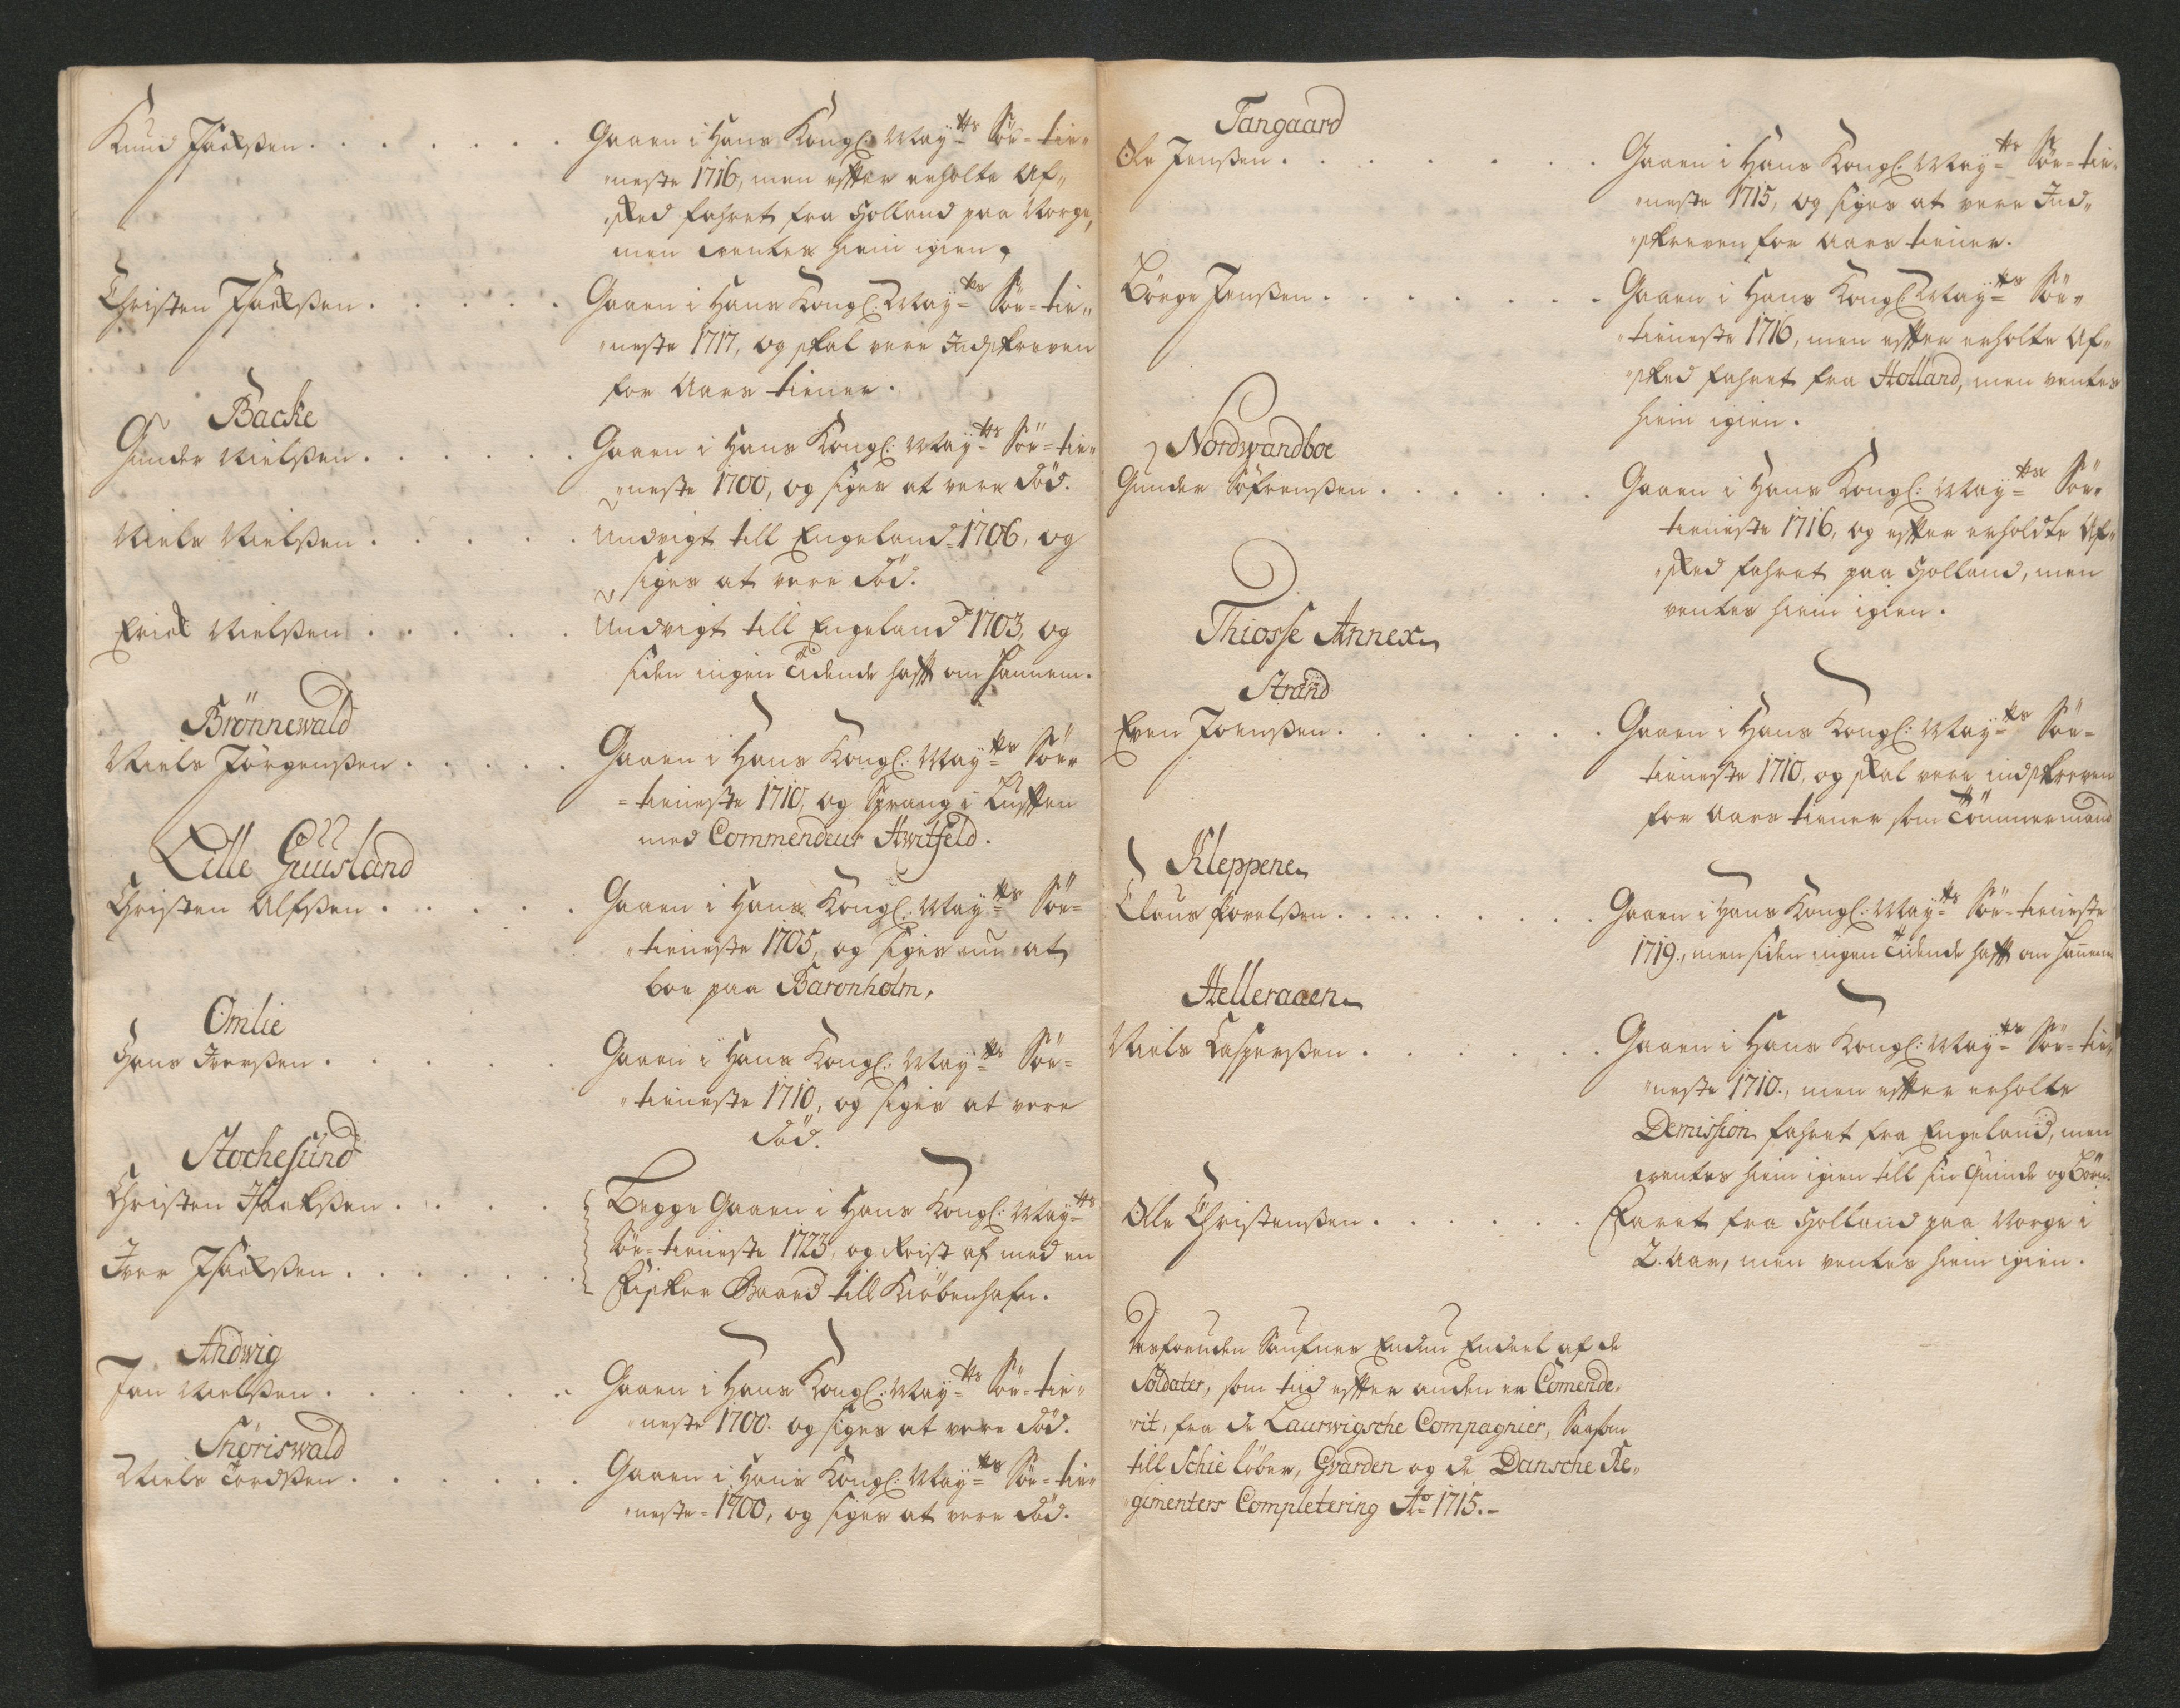 Knud Isaelsßen . . . . . . . Gaaen i Hans Kongl: May:tts Söe-tie„
„neste 1716, men effter erholte Af„
„sked fahret fra Holland paa Norge,
men ventes hiem igien.
Christen Isaelsßen . . . . . Gaaen i Hans Kongl: May:tts Söe-tie„
„neste 1717, og skal vere Indskreven
for Aars tiener.
Backe
Gunder Nielsßen . . . . . . Gaaen i Hans Kongl: May:tts Söe-tie„
„neste 1700, og siges at vere död.
Niels Nielsßen . . . . . . Undvigt till Engeland 1706, og
siges at vere död.
Erick Nielsßen . . . . . . Undvigt till Engeland 1703, og
siden ingen Tidende hafft om hannem.
Brönnewald
Niels Jörgensßen . . . . . Gaaen i Hans Kongl: May:tts Söe-
-tieneste 1710, og Sprang i Lufften
med Commendeur Hwitfeld.
Lille Guusland
Christen Alfsßen . . . . . Gaaen i Hans Kongl: May:tts Söe-
„tieneste 1705, og siges nu at
boe paa Baronholm.
Omlie
Hans Iversßen . . . . . Gaaen i Hans Kongl: May:tts Söe-
„tieneste 1710, og siges at vere
död.
Stochesund
Christen Isaelsßen . . . . Begge Gaaen i Hans Kongl: May:tts
Söe-tieneste 1723, og Reist af med en
Iver Isaelsßen . . . . . .
Fisker Baad till Kiöbenhafn.
Ahdwig
Jan Nielsßen . . . . . . Gaaen i Hans Kongl: May:tts Söe-tie„
„neste 1700. og siges at vere död.
Thöriswald
Niels Tordsßen . . . . . . Gaaen i Hans Kongl: May:tts Söe-tie„
„neste 1700, og siges at vere död.
Tangaard
Ole Jensßen . . . . . . . Gaaen i Hans Kongl: May:tts Söe-tie„
„neste 1715, og siges at vere Ind„
„skreven for Aars tiener.
Börge Jensßen . . . . . . . Gaaen i Hans Kongl: May:tts Söe„
„tieneste 1716, men effter erholte Af„
„sked fahret fra Holland, men ventes
hiem igien.
Nordwandboe
Gunder Söfrensßen . . . . . . Gaaen i Hans Kongl: May:tts Söe„
tieneste 1716, og effter erholdte Af„
„sked fahret paa Holland, men
ventes hiem igien.
Thiosse Annex
Strand
Even Joensßen . . . . . . . Gaaen i Hans Kongl: May:tts Söe-
tieneste 1710, og skal vere indskreven
for Aars tiener som Tömmermand
Kleppene
Claus Povelsßen . . . . . . . Gaaen i Hans Kongl: May:tts Söe-tieneste
1719., men siden ingen Tidende hafft om hannem
Helleraaen
Niels Caspersßen . . . . . . . Gaaen i Hans Kongl: May:tts Söe-tie„
„neste 1710., men effter erholte
Demission fahret fra Engeland, men
ventes hiem igien till sin Quinde og Börn.
Olle Christensßen . . . . . . Faret fra Holland paa Norge i
2. Aar, men ventes hiem igien.
Desforuden Saufnes Endnu Endeel af de
Soldater, som tiid effter anden er Comende„
„rit, fra de Laurwigsche Compagnier, Saasom
till Schie löber, Gvarden og de Dansche Re„
„gimenters Completering Ao 1715.-